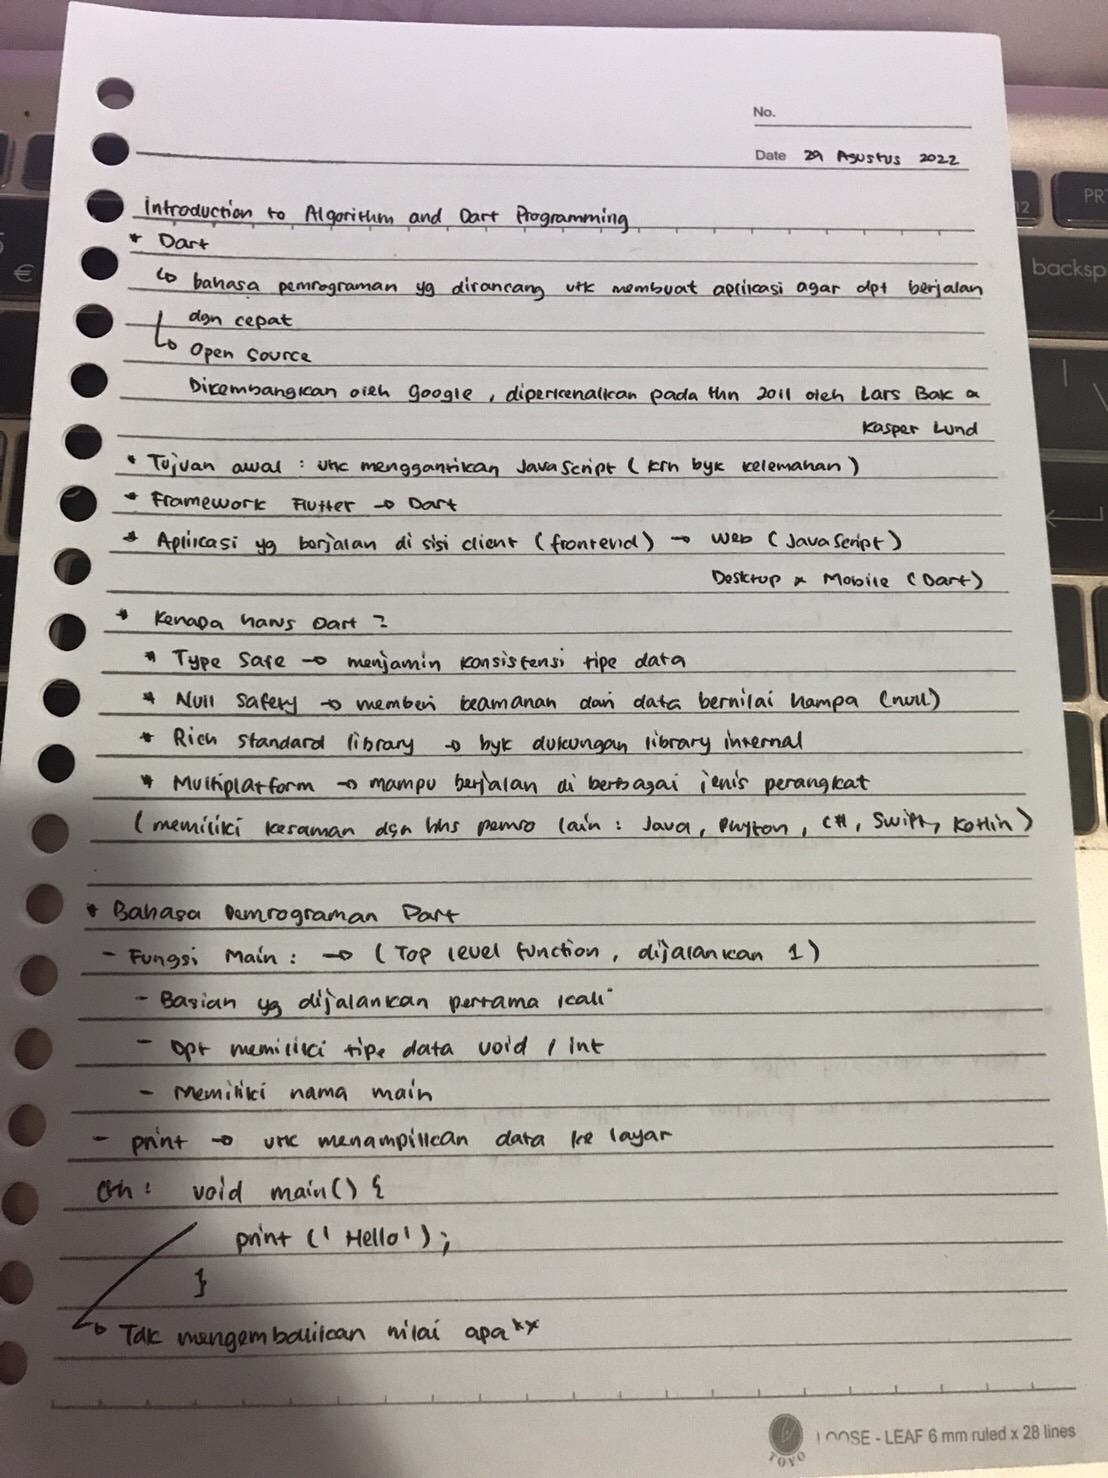 No.
Date 29 Agustus 2022
Introduction to Algorithm and Dart Programming
* Dart
↳ bahasa pemrograman yg dirancang utk membuat aplikasi agar dpt berjalan
dgn cepat
↳ Open Source
Dikembangkan oleh Google, diperkenalkan pada thn 2011 oleh Lars Bak &
Kasper Lund
* Tujuan awal : utk menggantikan JavaScript (krn byk kelemahan)
* Framework Flutter → Dart
* Aplikasi yg berjalan di sisi client (frontend) → Web (JavaScript)
Desktop & Mobile (Dart)
* Kenapa harus Dart ?
* Type Safe → menjamin konsistensi tipe data
* Null Safety → memberi keamanan dari data bernilai hampa (null)
* Rich Standard library → byk dukungan library internal
* Multiplatform → mampu berjalan di berbagai jenis perangkat
(memiliki kesaman dgn bhs pemro lain : Java, Phyton, C#, Swift, Kotlin)
* Bahasa Pemrograman Dart
- Fungsi Main : → (Top level function, dijalankan 1)
- Bagian yg dijalankan pertama kali
- Dpt memiliki tipe data void / int
- Memiliki nama main
- print → utk menampilkan data ke layar
Cth : void main() {
print (' Hello');
}
↳ Tdk mengembalikan nilai apa**
TOYO LOOSE - LEAF 6 mm ruled x 28 lines
PRT
12
backsp
5
€